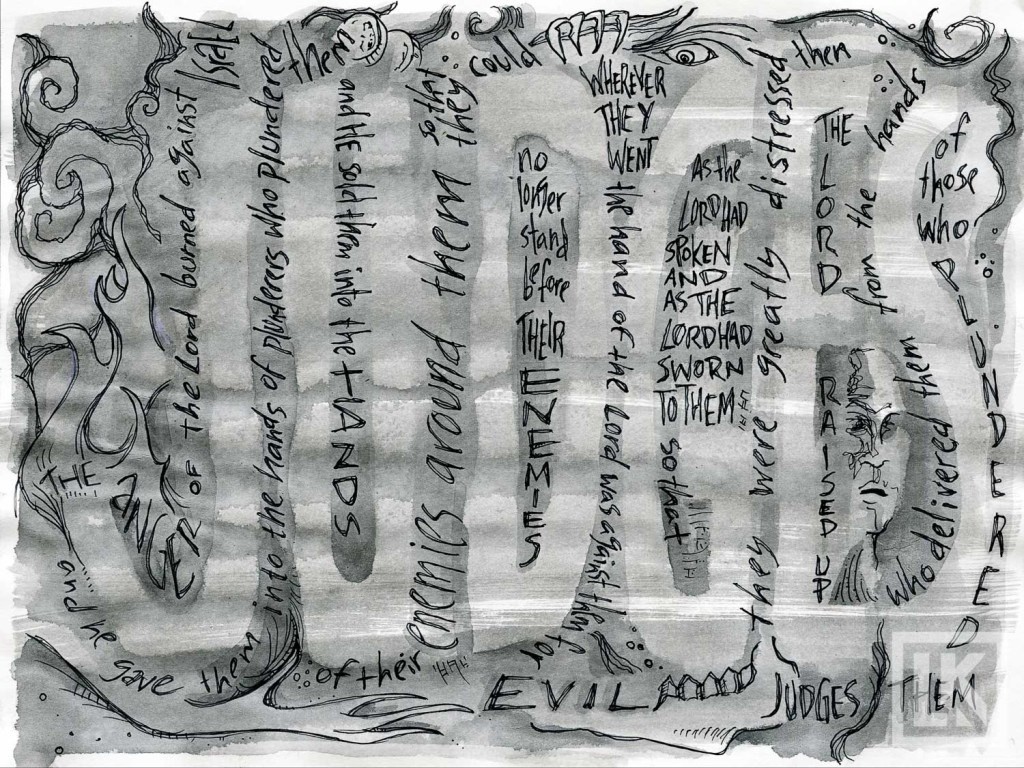 THE
ANGER
OF the Lord burned against
ISRAEL
and he
gave them
into the hands of plunderers who plundered
them
and HE sold them into the HANDS
of their
enemies around them
so that
they
could
no
longer
stand
before
THEIR
ENEMIES
WHEREVER
THEY
WENT
the hand of the Lord was against them
for
EVIL
As the
LORD HAD
SPOKEN
AND
AS THE
LORD HAD
SWORN
TO THEM
so that
they were greatly distressed
then
THE
LORD
RAISED UP
JUDGES
who delivered them
from the
hands
of
those
who
PLUNDERED
THEM
LK